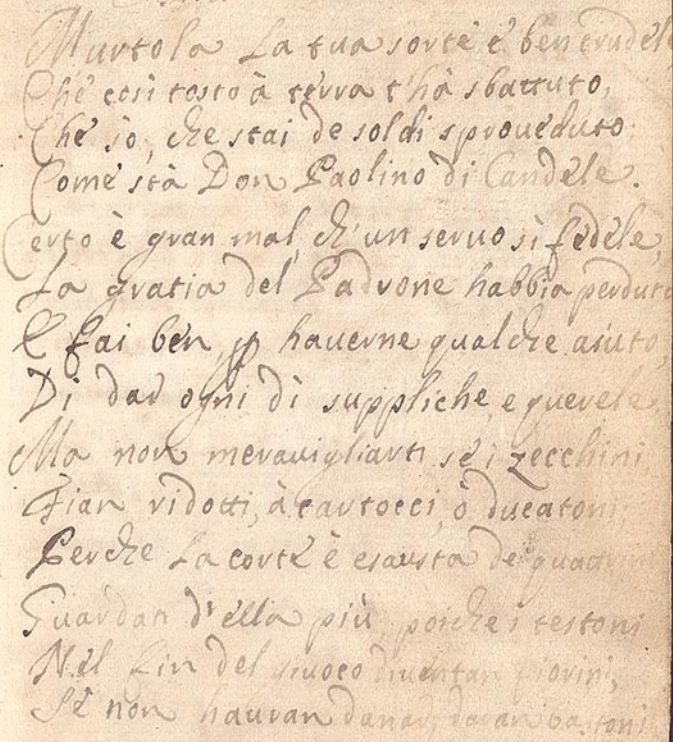 Murtola La tua sorte è ben crudele
Che così tosto à terra t'hà sbattuto,
Che sò, che stai de soldi sproueduto
Come stà Don Paolino di Candele.
Certo è gran mal, ch'un seruo sì fedele,
La gratia del Padrone habbia perduto
E fai ben, p hauerne qualche aiuto,
Di dar ogni dì suppliche, e querele,
Ma non merauigliarti se i zecchini,
Sian ridotti, à cartocci, ò ducatoni,
Perche La corte è esausta de quattrini
Guardan d'ella più, poiche i testoni
Nel fin del giuoco diuentan fiorini,
Se non hauran danar, daran bastoni